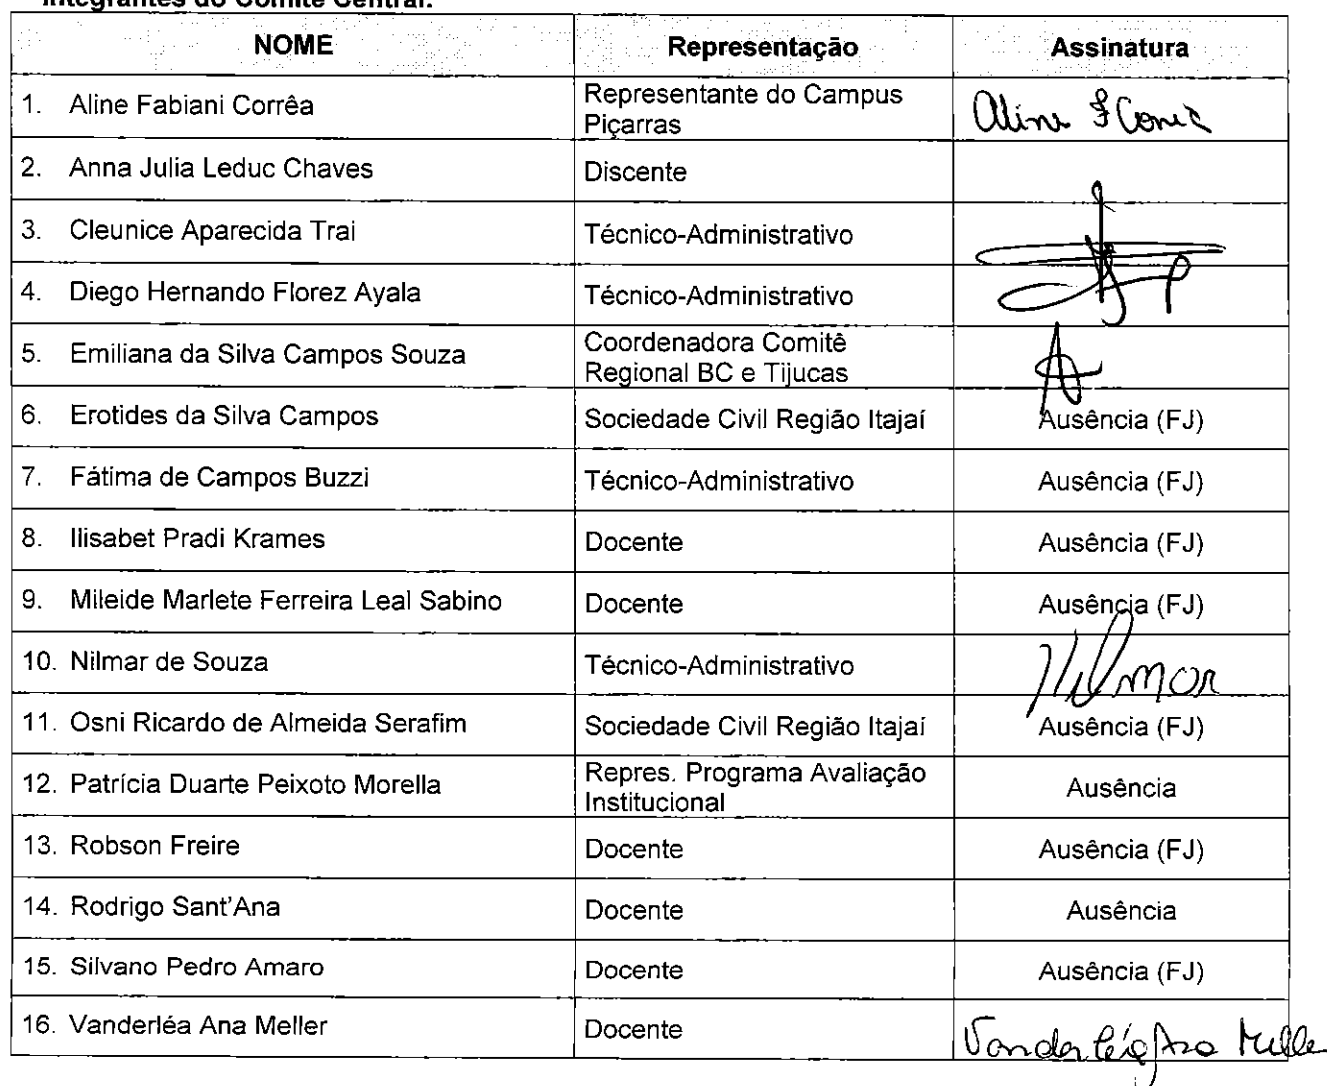 Integrantes do Comitê Central:
NOME Representação Assinatura
1. Aline Fabiani Corrêa Representante do Campus Piçarras Aline F Corrêa
2. Anna Julia Leduc Chaves Discente
3. Cleunice Aparecida Trai Técnico-Administrativo
4. Diego Hernando Florez Ayala Técnico-Administrativo
5. Emiliana da Silva Campos Souza Coordenadora Comitê Regional BC e Tijucas
6. Erotides da Silva Campos Sociedade Civil Região Itajaí Ausência (FJ)
7. Fátima de Campos Buzzi Técnico-Administrativo Ausência (FJ)
8. Ilisabet Pradi Krames Docente Ausência (FJ)
9. Mileide Marlete Ferreira Leal Sabino Docente Ausência (FJ)
10. Nilmar de Souza Técnico-Administrativo Nilmar
11. Osni Ricardo de Almeida Serafim Sociedade Civil Região Itajaí Ausência (FJ)
12. Patrícia Duarte Peixoto Morella Repres. Programa Avaliação Institucional Ausência
13. Robson Freire Docente Ausência (FJ)
14. Rodrigo Sant'Ana Docente Ausência
15. Silvano Pedro Amaro Docente Ausência (FJ)
16. Vanderléa Ana Meller Docente Vanderléa Ana Meller